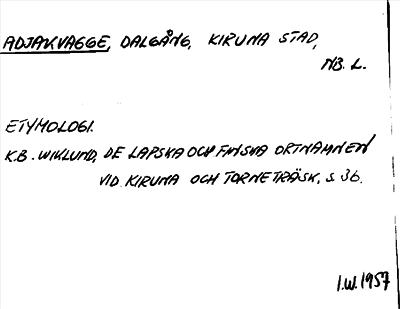 ADJAKVAGGE, DALGÅNG, KIRUNA STAD,
NB. L.
ETYMOLOGI.
K.B. WIKLUND, DE LAPSKA OCH FINSKA ORTNAMNEN
VID KIRUNA OCH TORNETRÄSK, S 36.
I.W. 1957